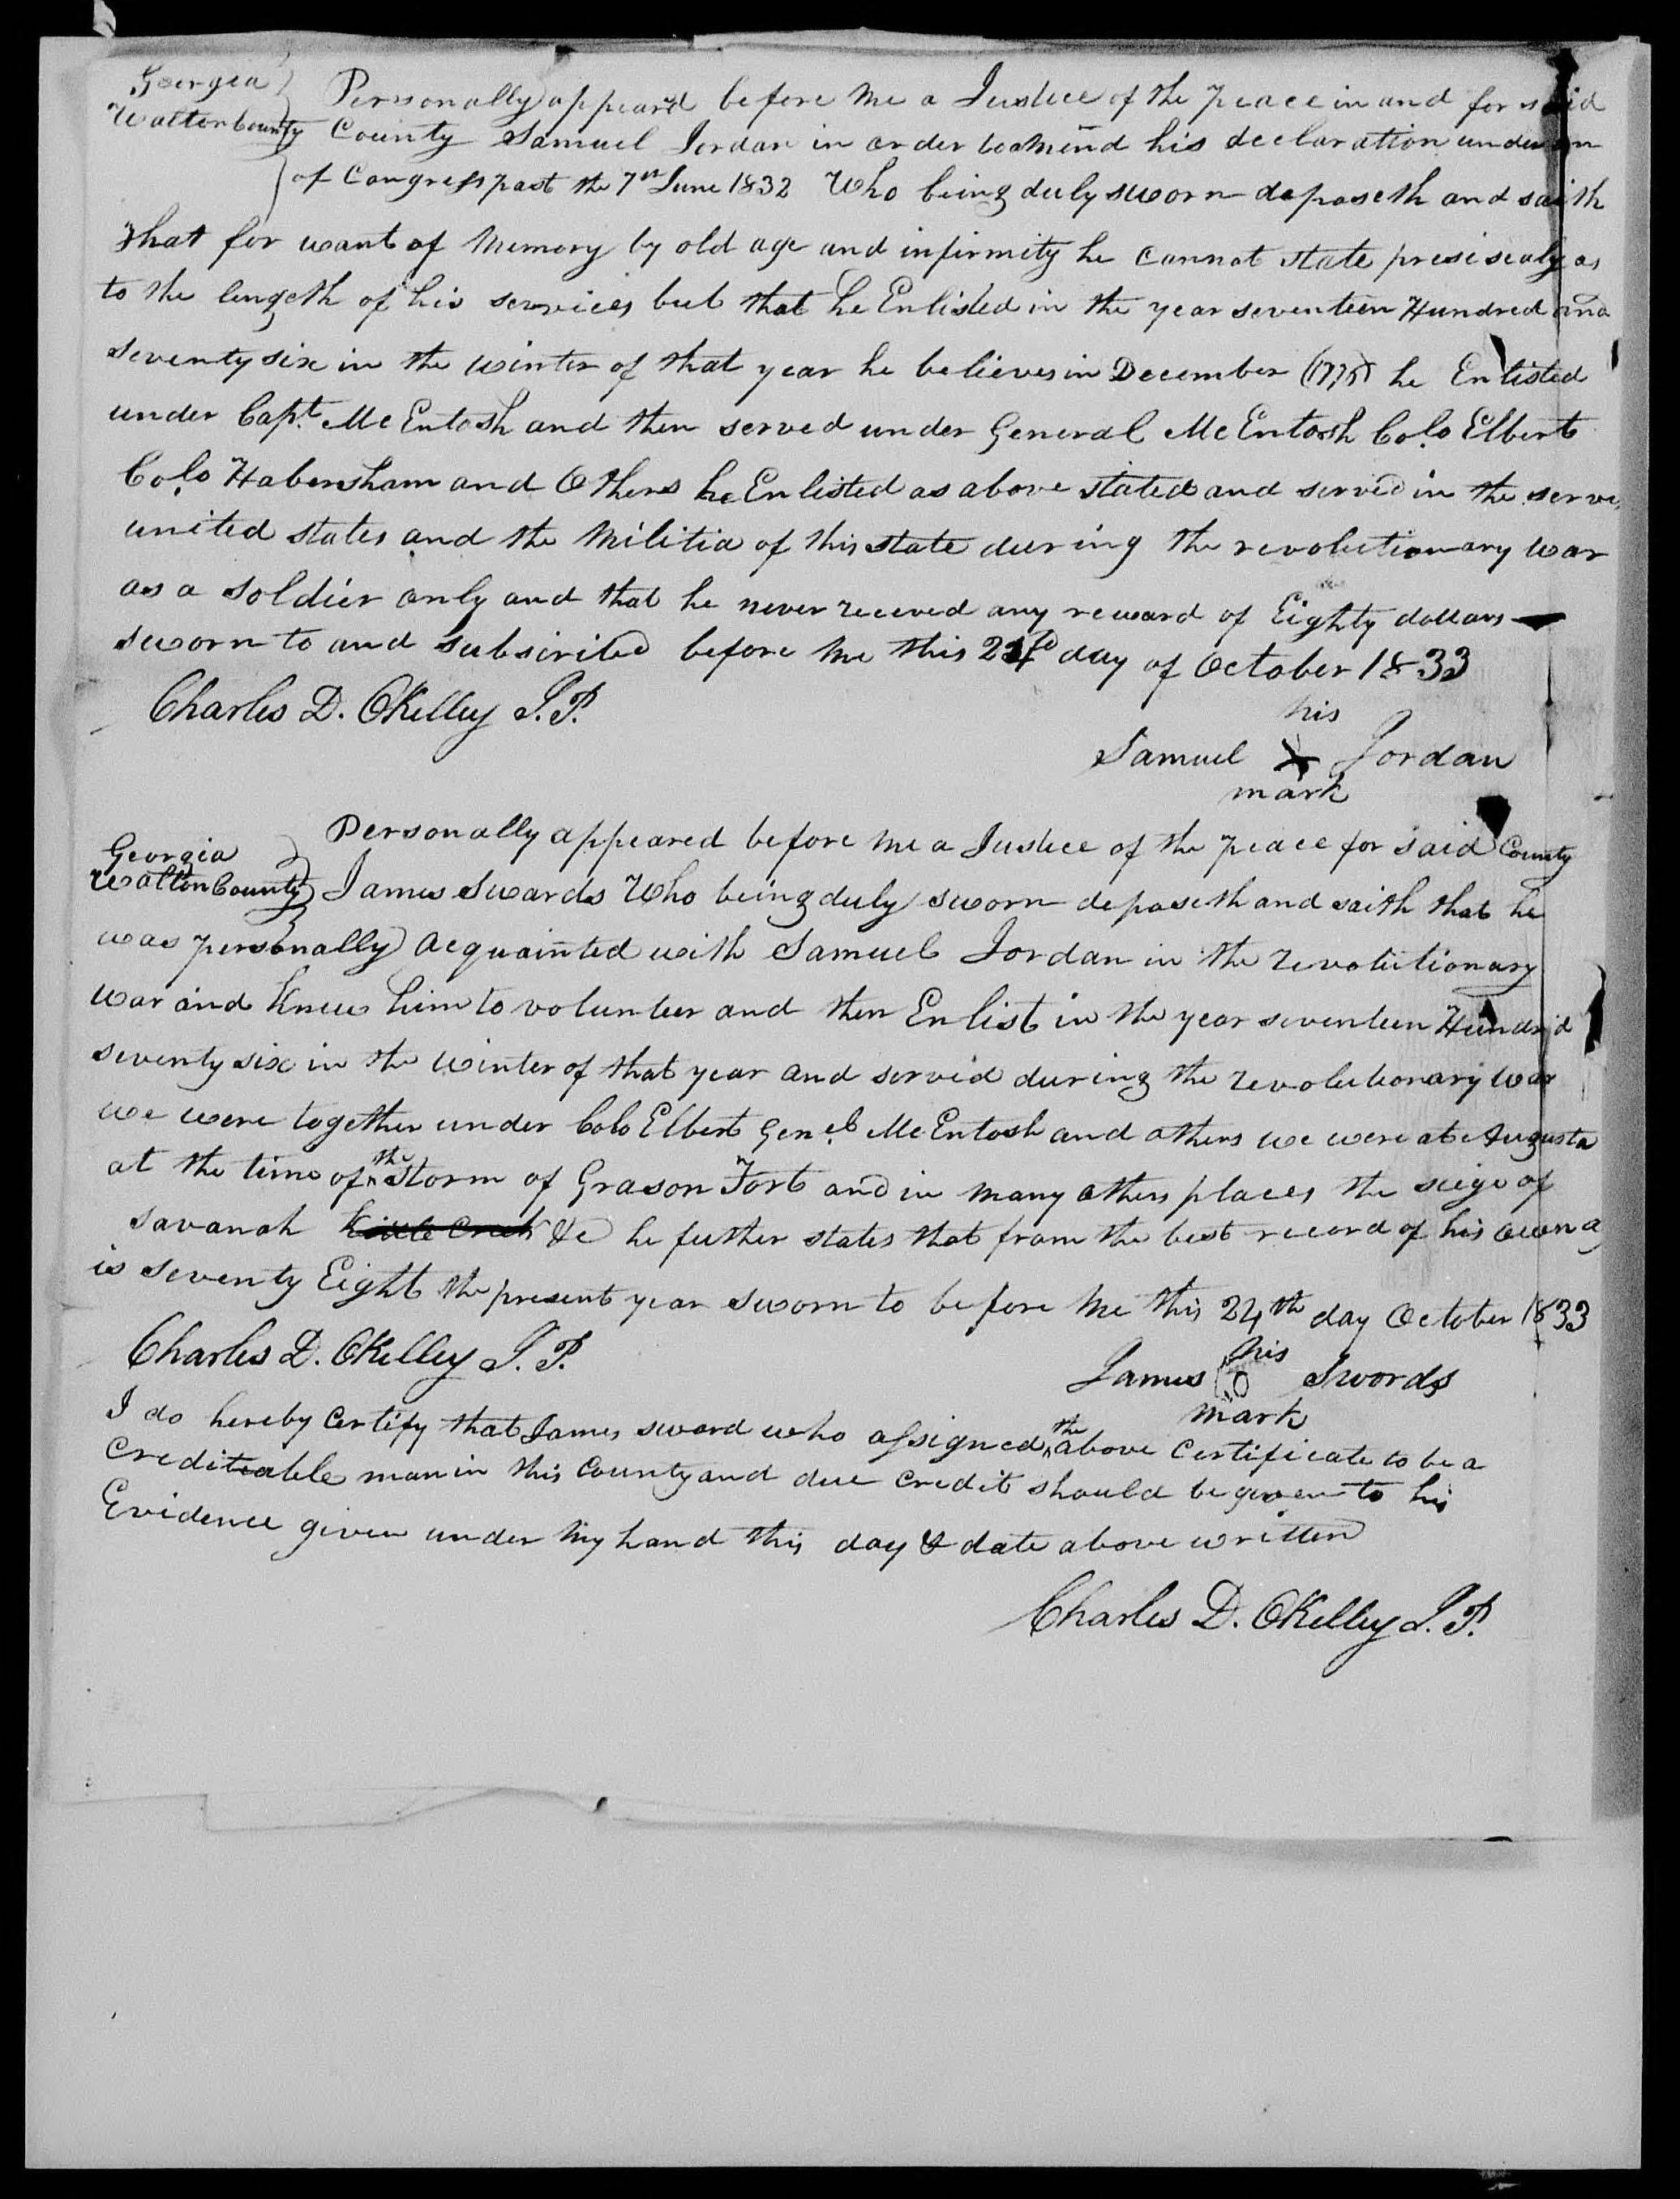 Georgia
Walton County
Personally appeard before me a Justice of the peace in and for said
County Samuel Jordan in order to amend his declaration under an
of Congress past the 7th June 1832 Who being duly sworn deposeth and saith
that for want of memory by old age and infirmity he cannot state presisealy as
to the length of his services but that he Enlisted in the year seventeen Hundred and
seventy six in the winter of that year he believes in December (1776) he Enlisted
under Capt. McEntosh and then served under General McEntosh Colo Elbert
Colo Habersham and Others he Enlisted as above stated and served in the
united states and the Militia of this state during the revolutionary war
as a soldier only and that he never receved any reward of Eighty dollars
sworn to and subscribed before me this 24th day of October 1833
Charles D. OKelley J.P.
his
Samuel X Jordan
mark
Georgia
Walton County
Personally appeared before me a Justice of the peace for said County
James Swards Who being duly sworn deposeth and saith that he
was personally acquainted with Samuel Jordan in the revolutionary
war and knew him to volunteer and then Enlist in the year seventeen Hundred
seventy six in the winter of that year and served during the revolutionary war
we were together under Colo Elbert Genel McEntosh and others we were at Augusta
at the time of the storm of Grason Fort and in many others places the siege of
savanah Kittle Creek &c he futher states that from the best record of his own a
is seventy Eight the present year sworn to before me this 24th day October 1833
Charles D. OKelley J.P.
his
James O Swords
mark
I do hereby certify that James sword who assigned the above certificate to be a
crediteable man in this County and due credit should be given to his
Evidence given under my hand this day & date above written
Charles D. OKelley J.P.